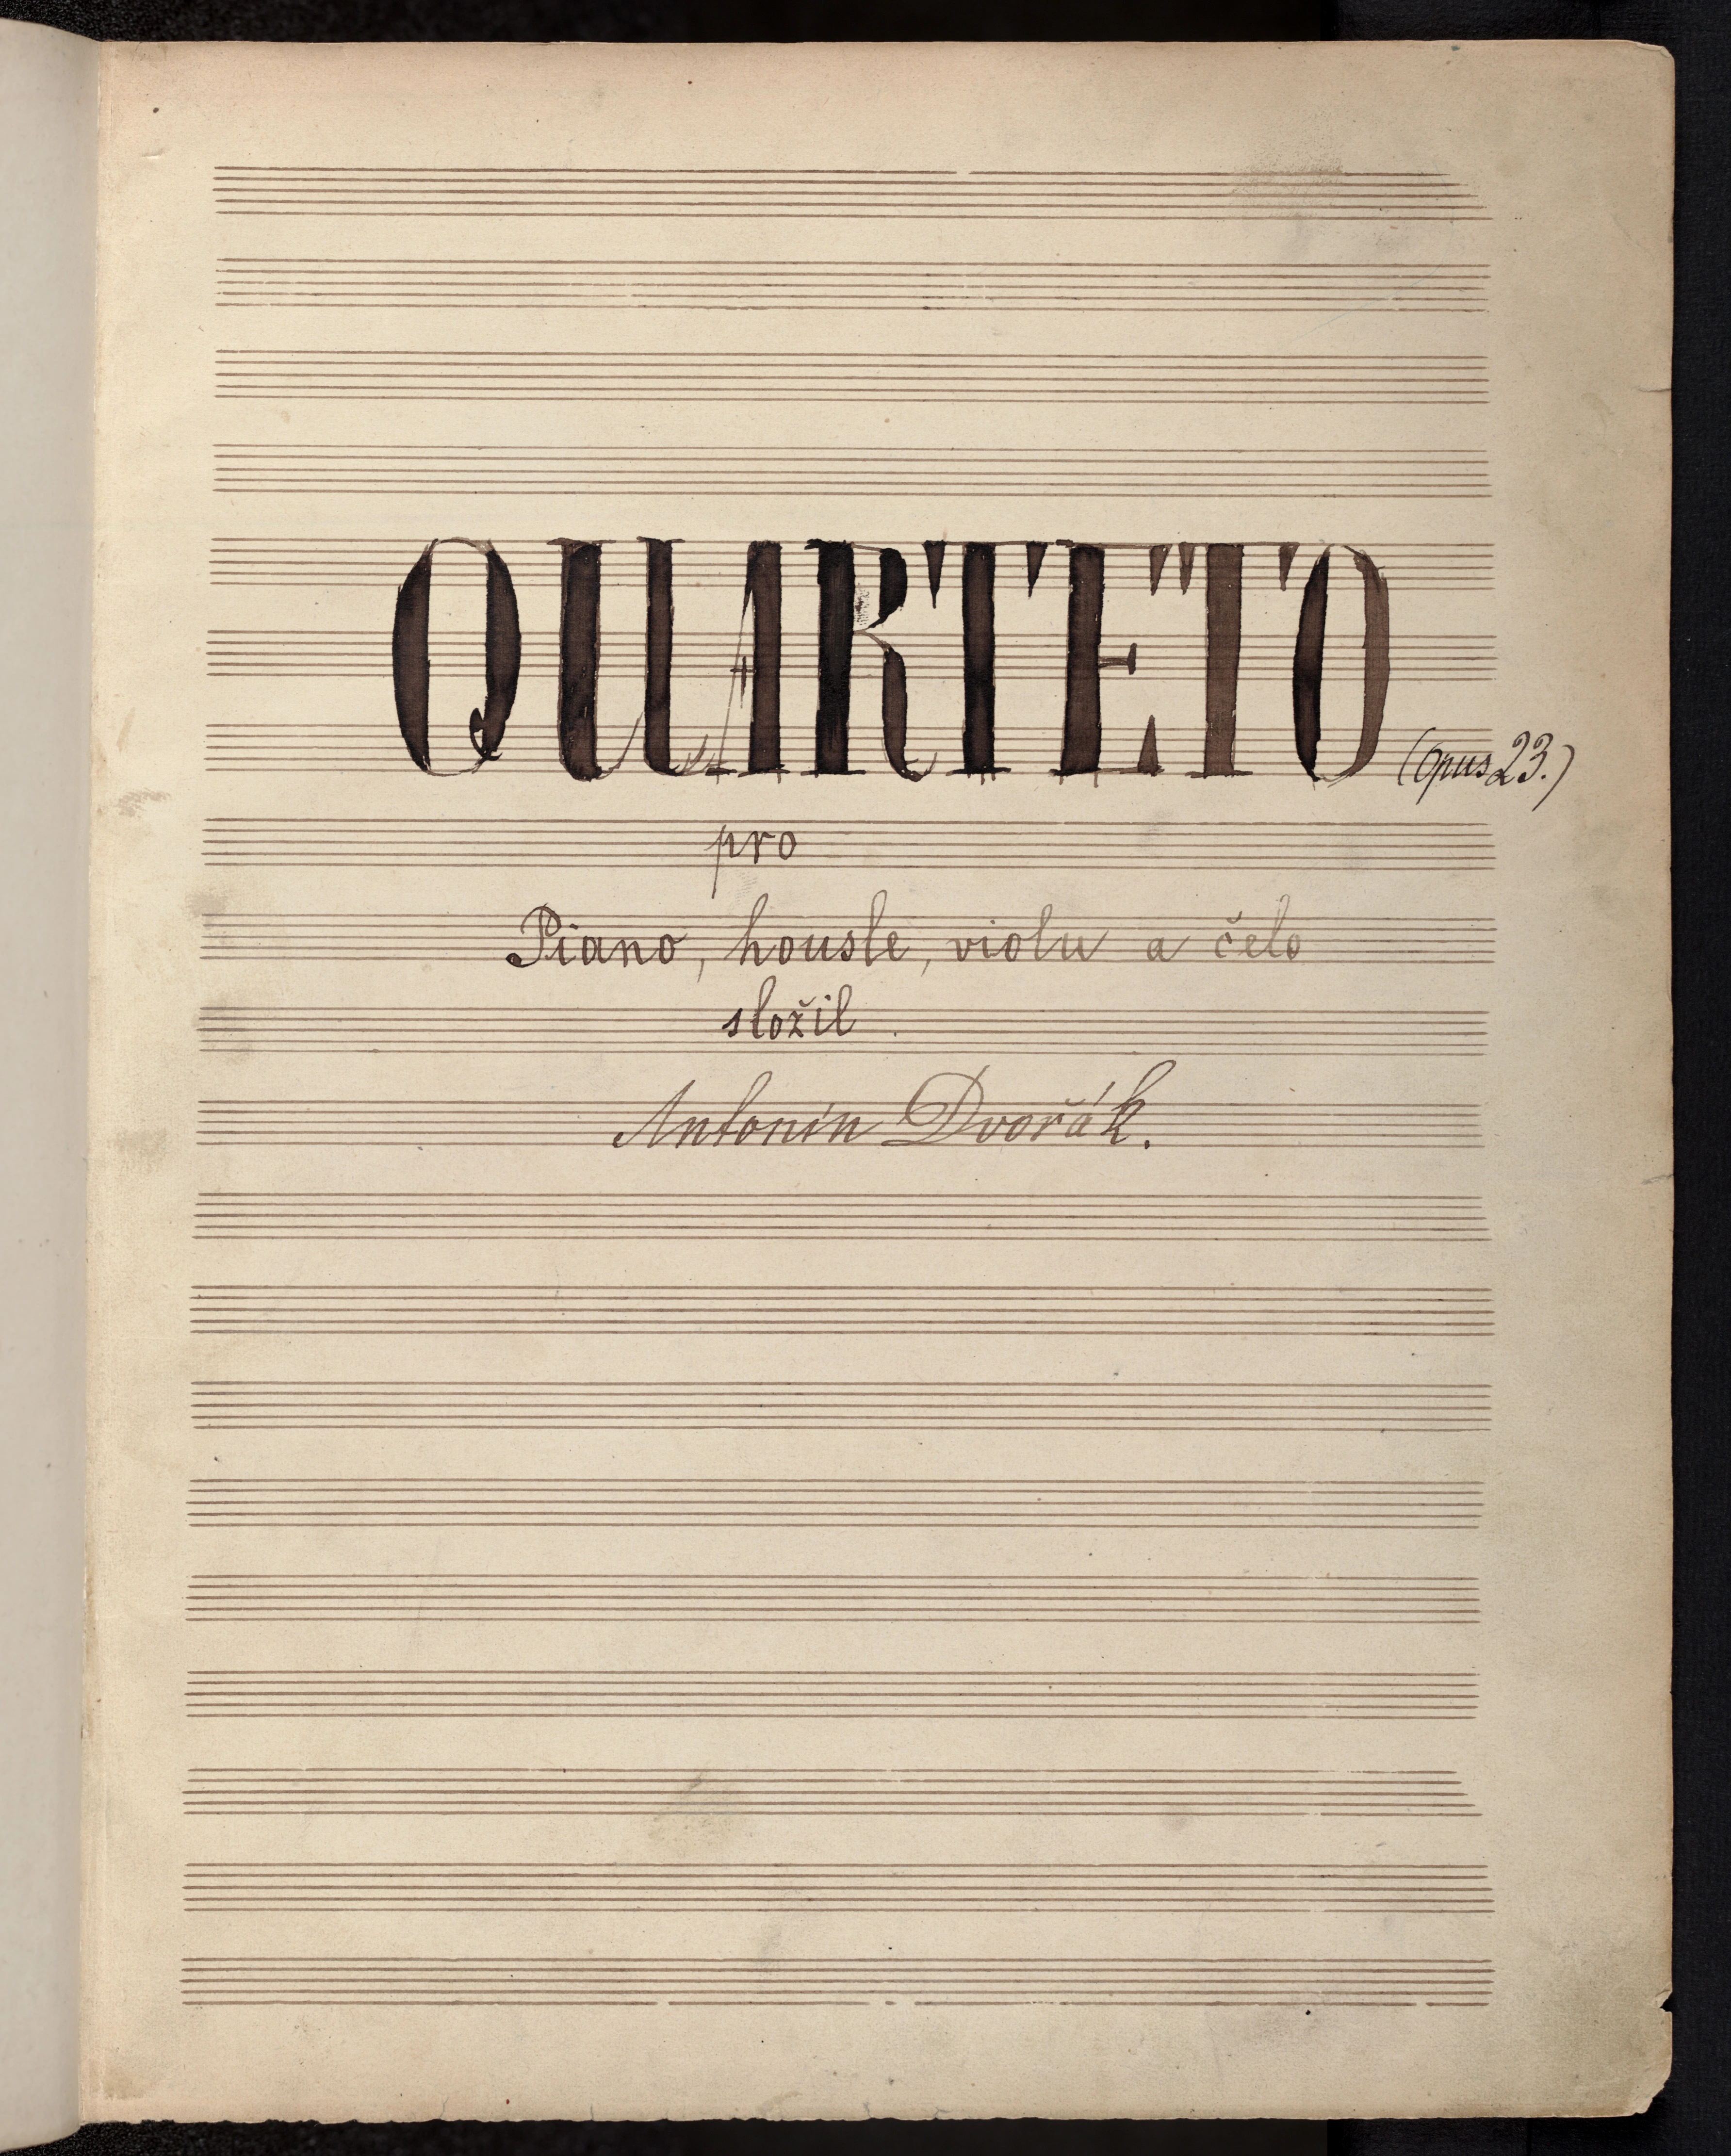 QUARTETO (opus 23.)
pro
Piano, housle, violu a čelo
složil.
Antonín Dvořák.